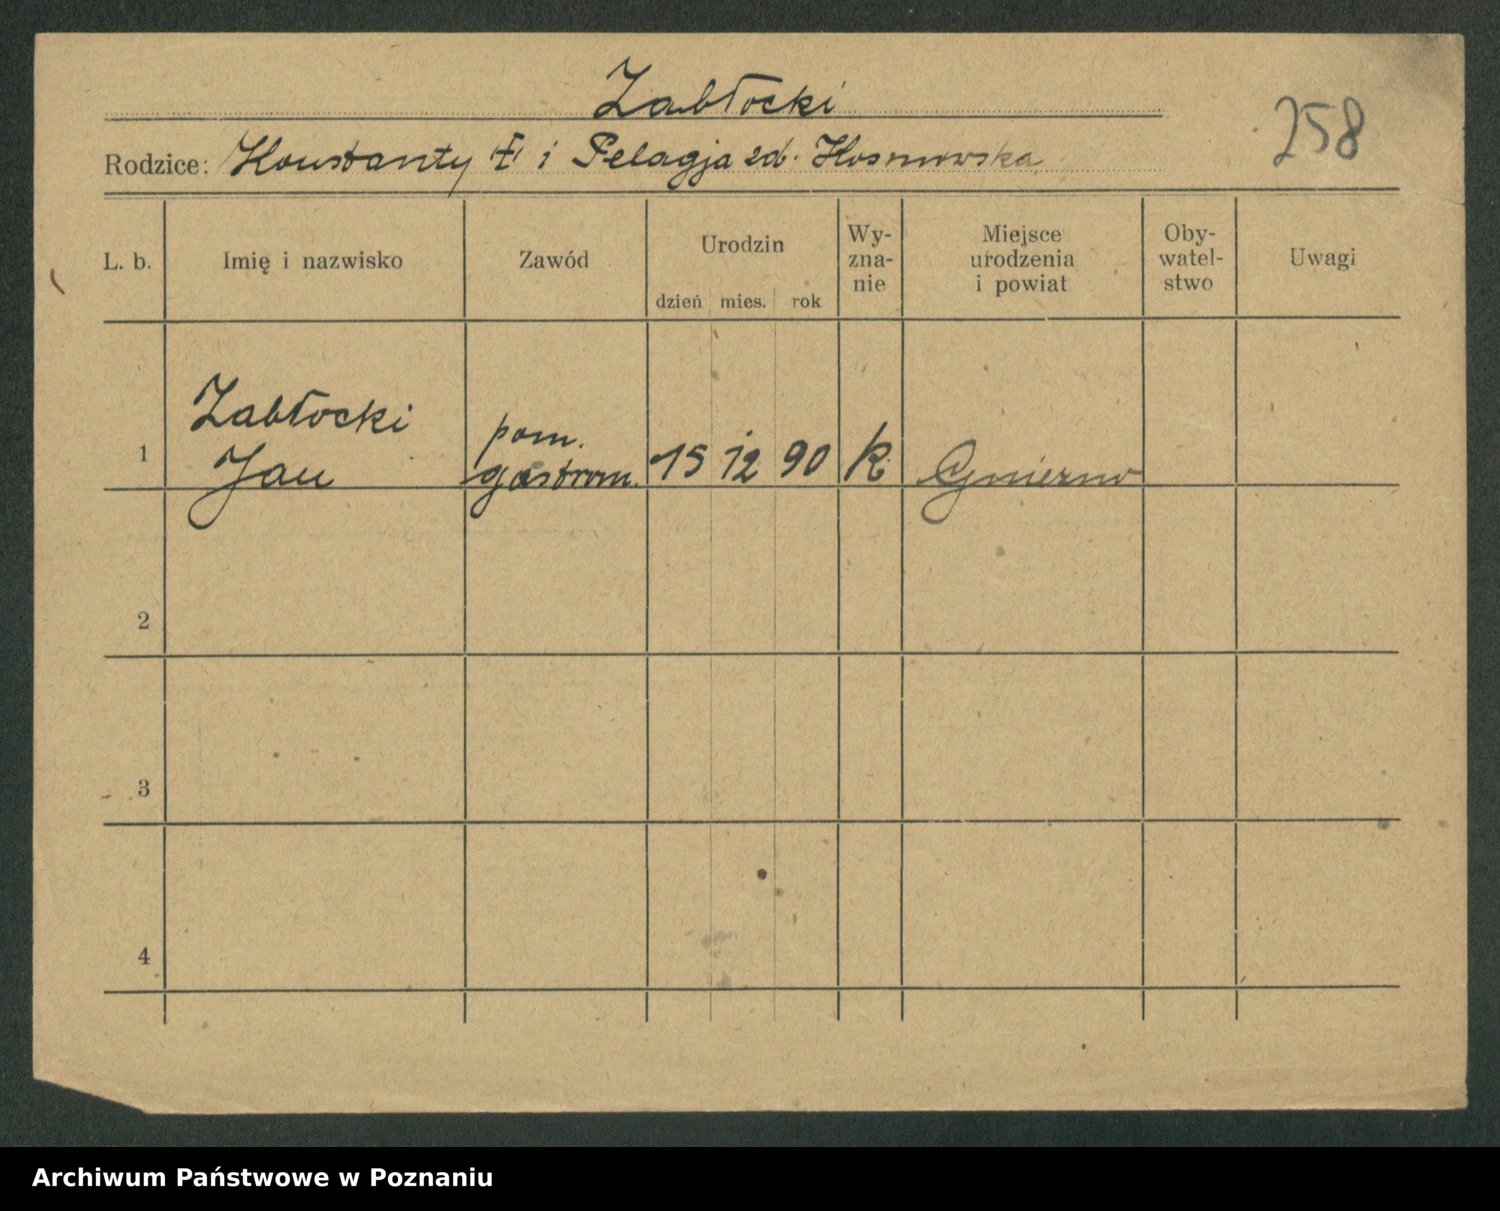 Zabłocki
258
Rodzice: Konstanty † i Pelagja zd. Kosmowska
L. b. Imię i nazwisko Zawód Urodzin Wy-zna-nie Miejsce urodzenia i powiat Oby-watel-stwo Uwagi
dzień mies. rok
Zabłocki pom.
1 Jan gastron. 15 12 90 k. Gniezno
2
3
4
Archiwum Państwowe w Poznaniu